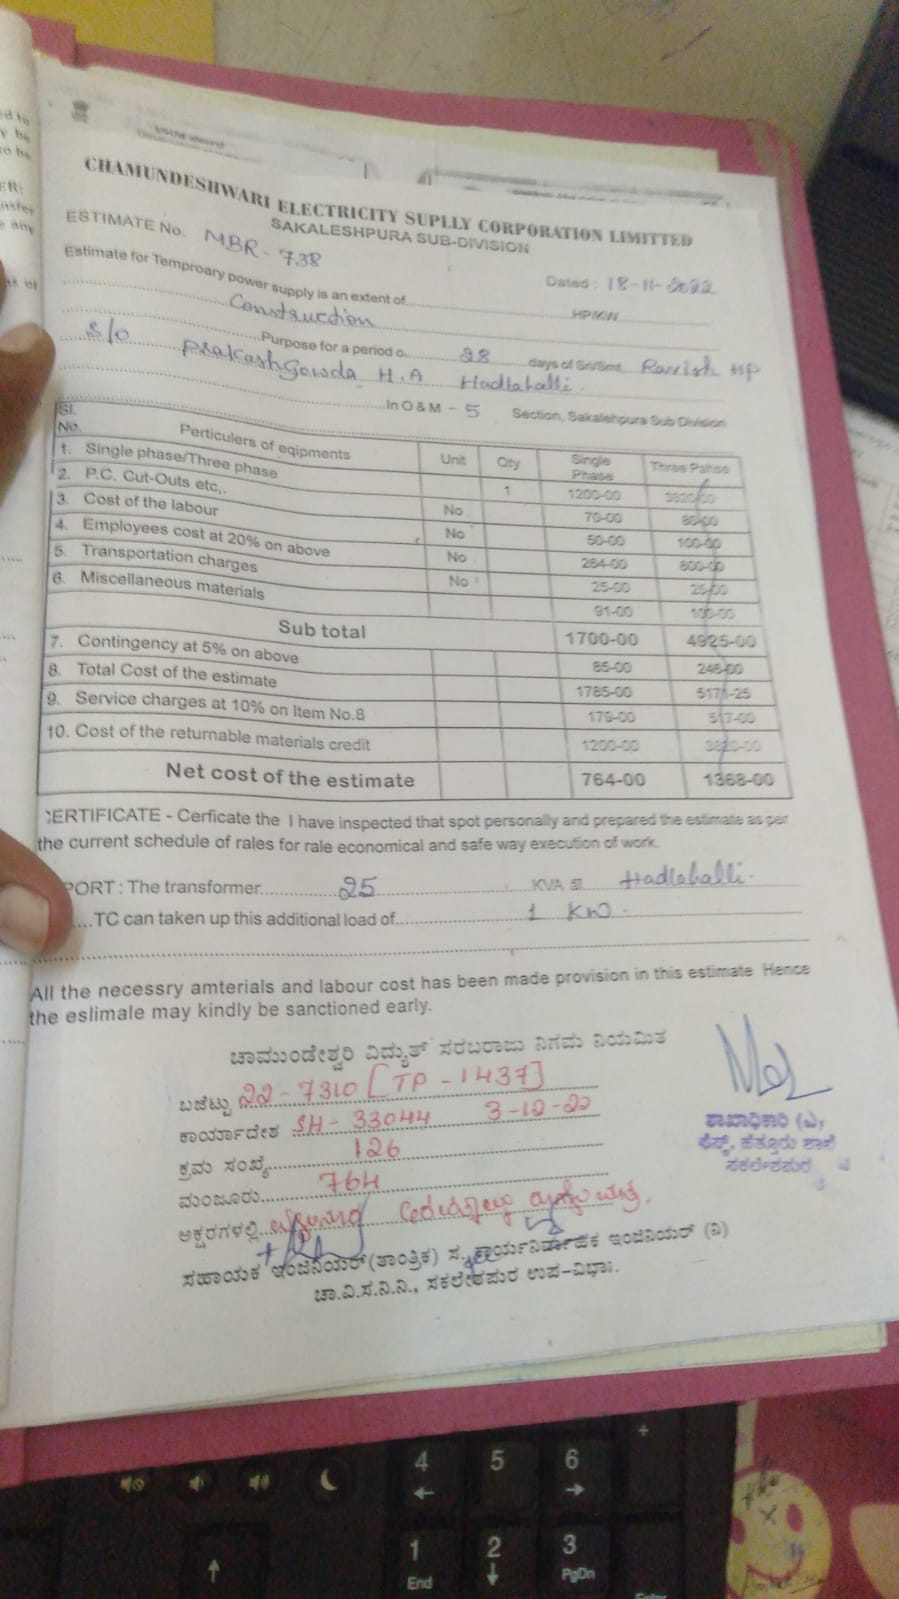 CHAMUNDESHWARI ELECTRICITY SUPLLY CORPORATION LIMITTED
SAKALESHPURA SUB-DIVISION
ESTIMATE No. MBR-738
Dated : 18-11-2022
Estimate for Temproary power supply is an extent of HP/KW
Construction Purpose for a period o 28 days of Sri/Smt. Ravish HP
S/o PrakashGowda H.A Hadlahalli.
In O & M - 5 Section, Sakalehpura Sub Division
Sl. No. Perticulers of eqipments Unit Qty Single Phase Three Pahse
1. Single phase/Three phase 1 1200-00 3820-00
2. P.C. Cut-Outs etc,. No 70-00 80-00
3. Cost of the labour No 50-00 100-00
4. Employees cost at 20% on above No 264-00 800-00
5. Transportation charges No 25-00 25-00
6. Miscellaneous materials 91-00 100-00
Sub total 1700-00 4925-00
7. Contingency at 5% on above 85-00 246-00
8. Total Cost of the estimate 1785-00 5171-25
9. Service charges at 10% on Item No.8 179-00 517-00
10. Cost of the returnable materials credit 1200-00 3820-00
Net cost of the estimate 764-00 1368-00
ERTIFICATE - Cerficate the I have inspected that spot personally and prepared the estimate as per
the current schedule of rales for rale economical and safe way execution of work.
PORT : The transformer 25 KVA at Hadlahalli.
TC can taken up this additional load of 1 KW.
All the necessry amterials and labour cost has been made provision in this estimate Hence
the eslimale may kindly be sanctioned early.
ಚಾಮುಂಡೇಶ್ವರಿ ವಿದ್ಯುತ್ ಸರಬರಾಜು ನಿಗಮ ನಿಯಮಿತ
ಬಜೆಟ್ಟು 22-7310 [TP-1437]
ಕಾರ್ಯಾದೇಶ SH-33044 3-12-22
ಕ್ರಮ ಸಂಖ್ಯೆ 126
ಮಂಜೂರು 764
ಅಕ್ಷರಗಳಲ್ಲಿ
ಸಹಾಯಕ ಇಂಜಿನಿಯರ್ (ತಾಂತ್ರಿಕ) ಸ. ಕಾರ್ಯನಿರ್ವಾಹಕ ಇಂಜಿನಿಯರ್ (ವಿ)
ಚಾ.ವಿ.ಸ.ನಿ.ನಿ., ಸಕಲೇಶಪುರ ಉಪ-ವಿಭಾಗ.
ಶಾಖಾಧಿಕಾರಿ (ವಿ)
ಹೆತ್ತೂರು ಶಾಖೆ
ಸಕಲೇಶಪುರ
4 5 6 +
1 End 2 3 PgDn